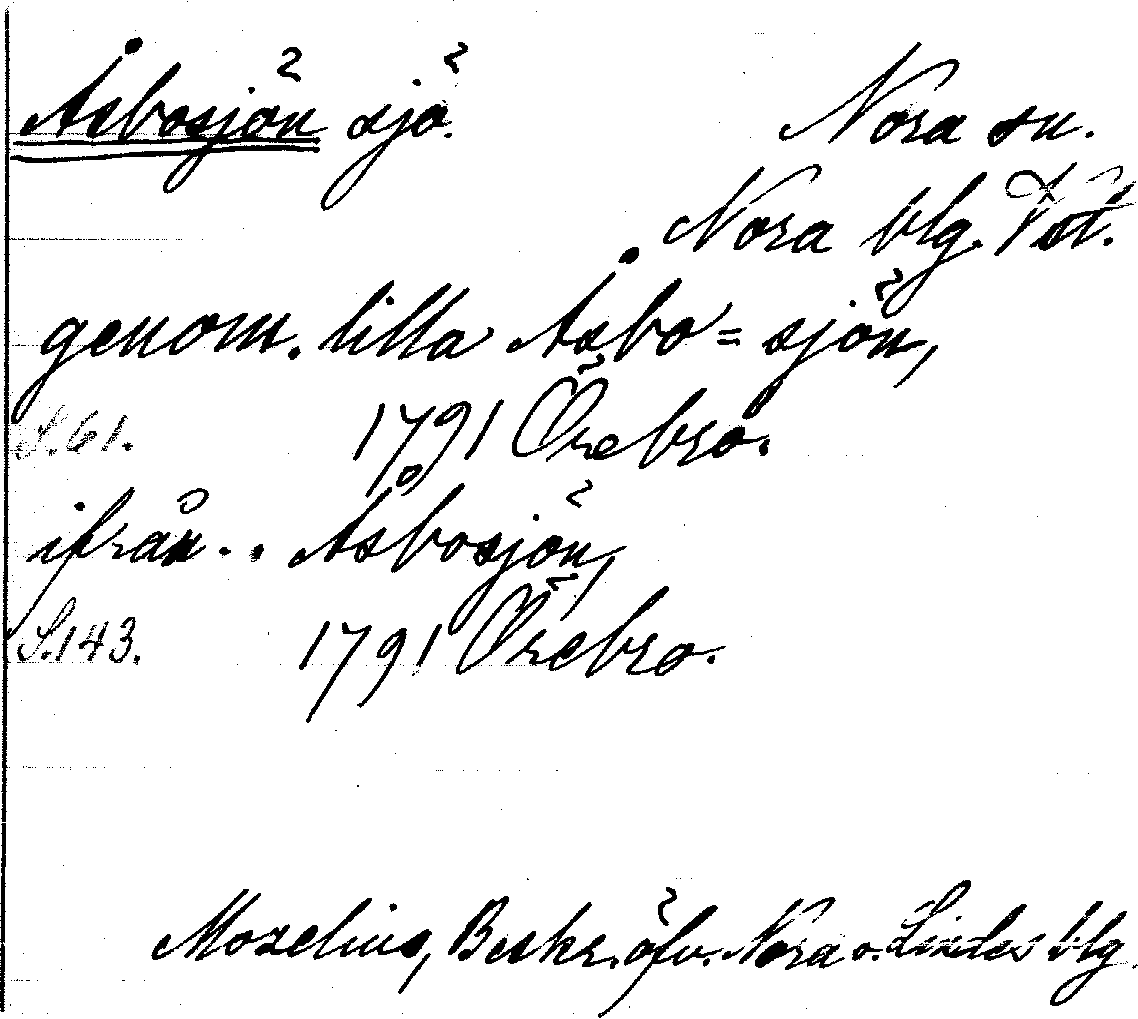 Åsbosjön sjö. Nora sn.
Nora blg. Vstl.
genom. lilla Åsbo=sjön,
S. 61. 1791 Örebro.
ifrån . . Åsbosjön,
S. 143. 1791 Örebro.
Mozelius, Beskr. öfv. Nora o. Lindes blg.